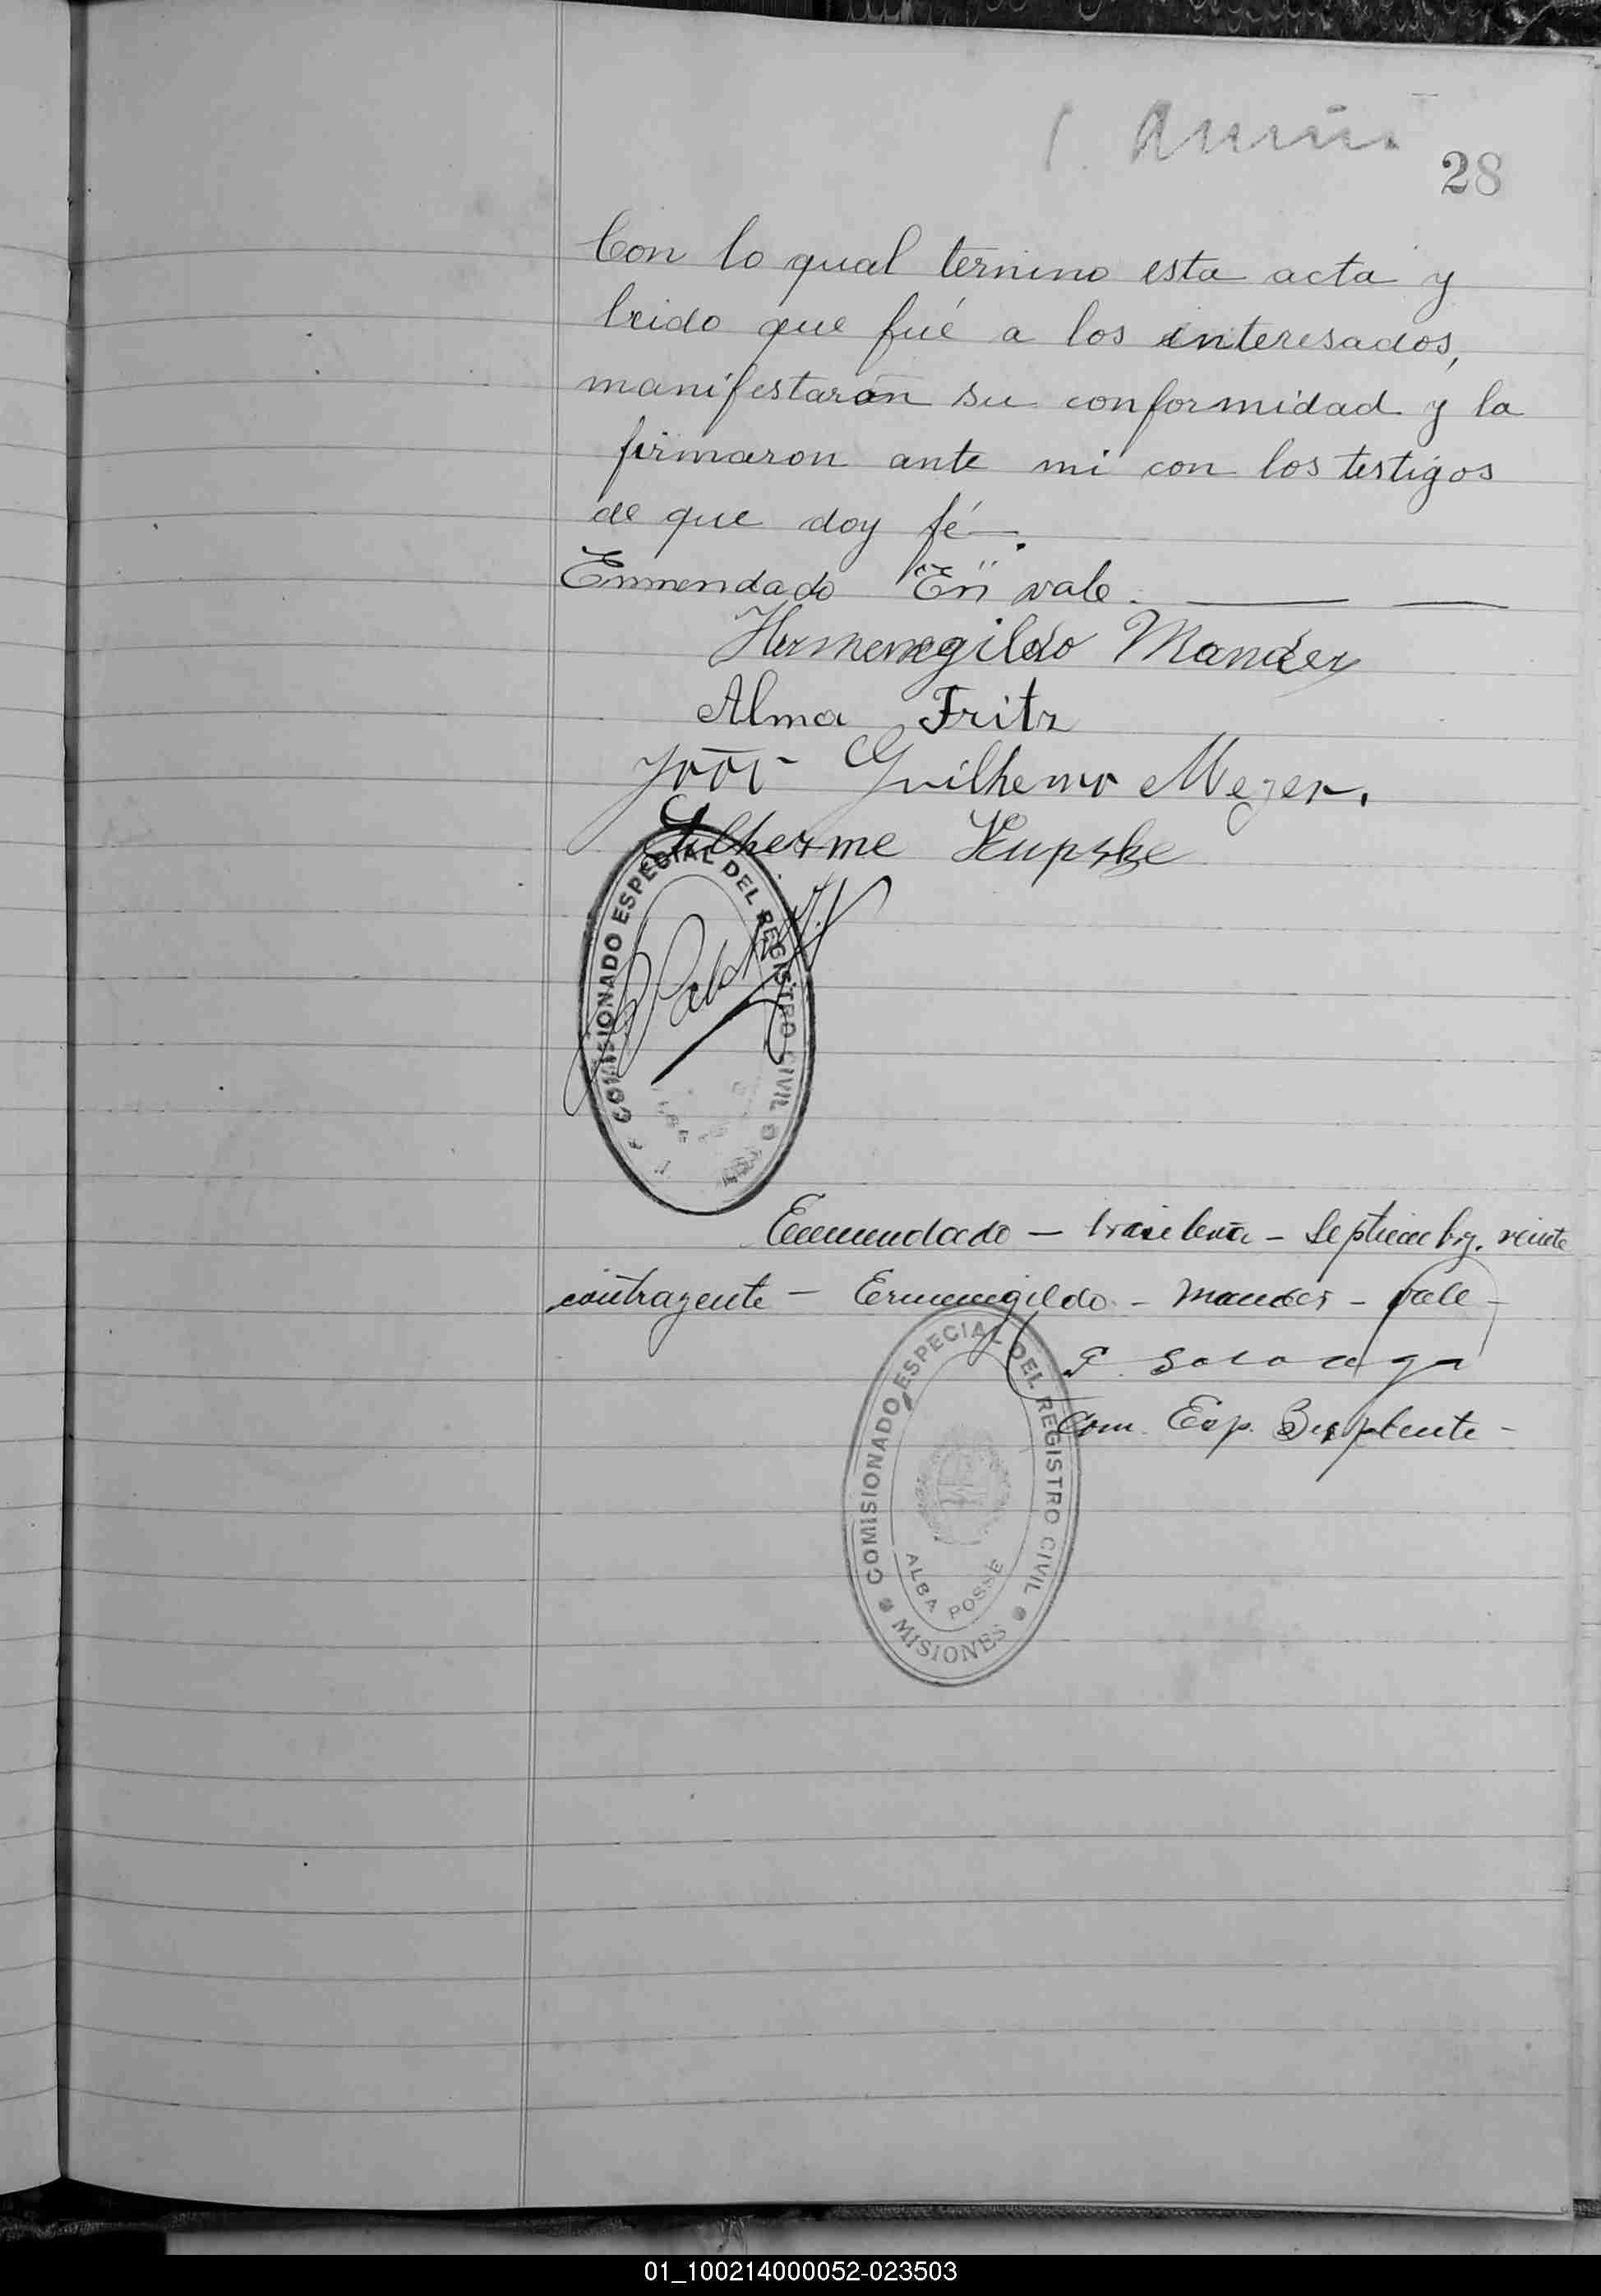 28
Con lo qual termino esta acta y
leido que fué a los interesados,
manifestaron su conformidad y la
firmaron ante mi con los testigos
de que doy fé.
Enmendado "En" vale.
Hermenegildo Mander
Alma Fritz
João Guilhemo Meyer.
Guilherme Kupske
COMISIONADO ESPECIAL DEL REGISTRO CIVIL
Enmendado — brasileña — Septiembre. veinte
contrayente — Ermenegildo — Mander — vale —
Com. Esp. Suplente —
COMISIONADO ESPECIAL DEL REGISTRO CIVIL
ALBA POSSE
MISIONES
01_100214000052-023503